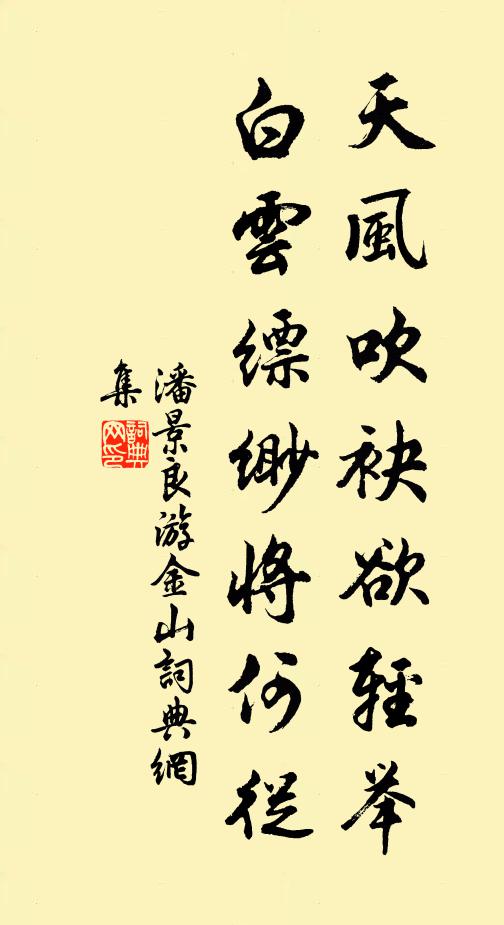 天風吹袂欲輕举
白雲縹緲將何從
潘景良游金山詞典網
集
詞典網印